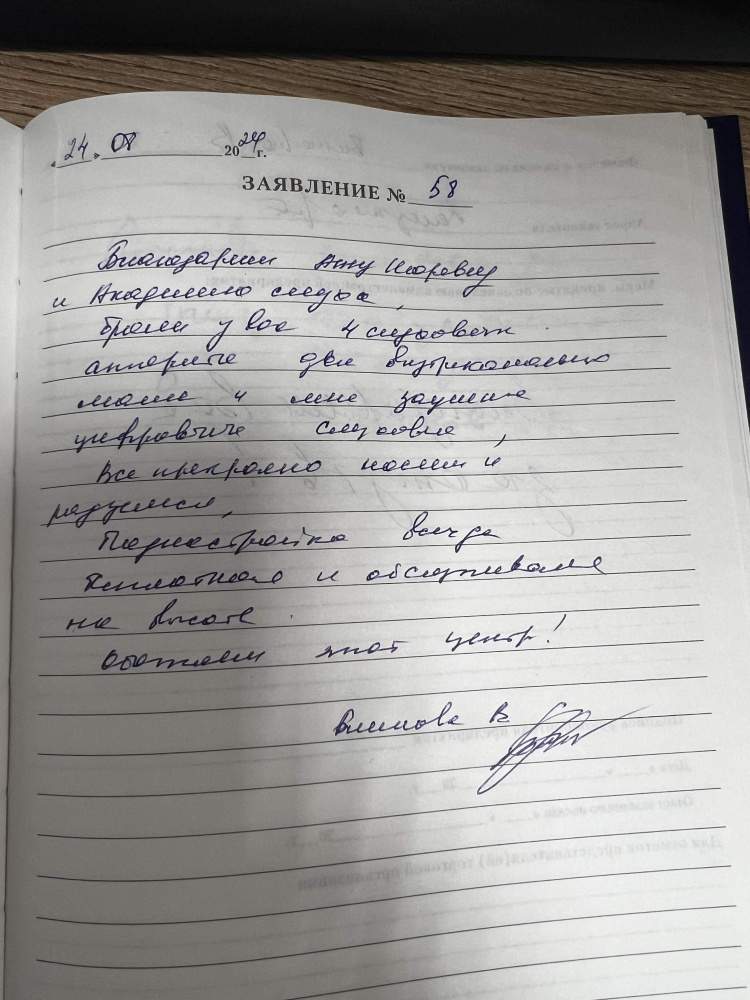 «24» 08 2024 г.
ЗАЯВЛЕНИЕ № 58
Благодарим Анну Игоревну
и Академию слуха,
брали у вас 4 слуховых
аппарата два внутриканальных
маме и мне заушные
цифровые слуховые,
Все прекрасно носим и
радуемся,
Поднастройка всегда
бесплатная и обслуживание
на высоте.
Обожаем этот центр!
В.